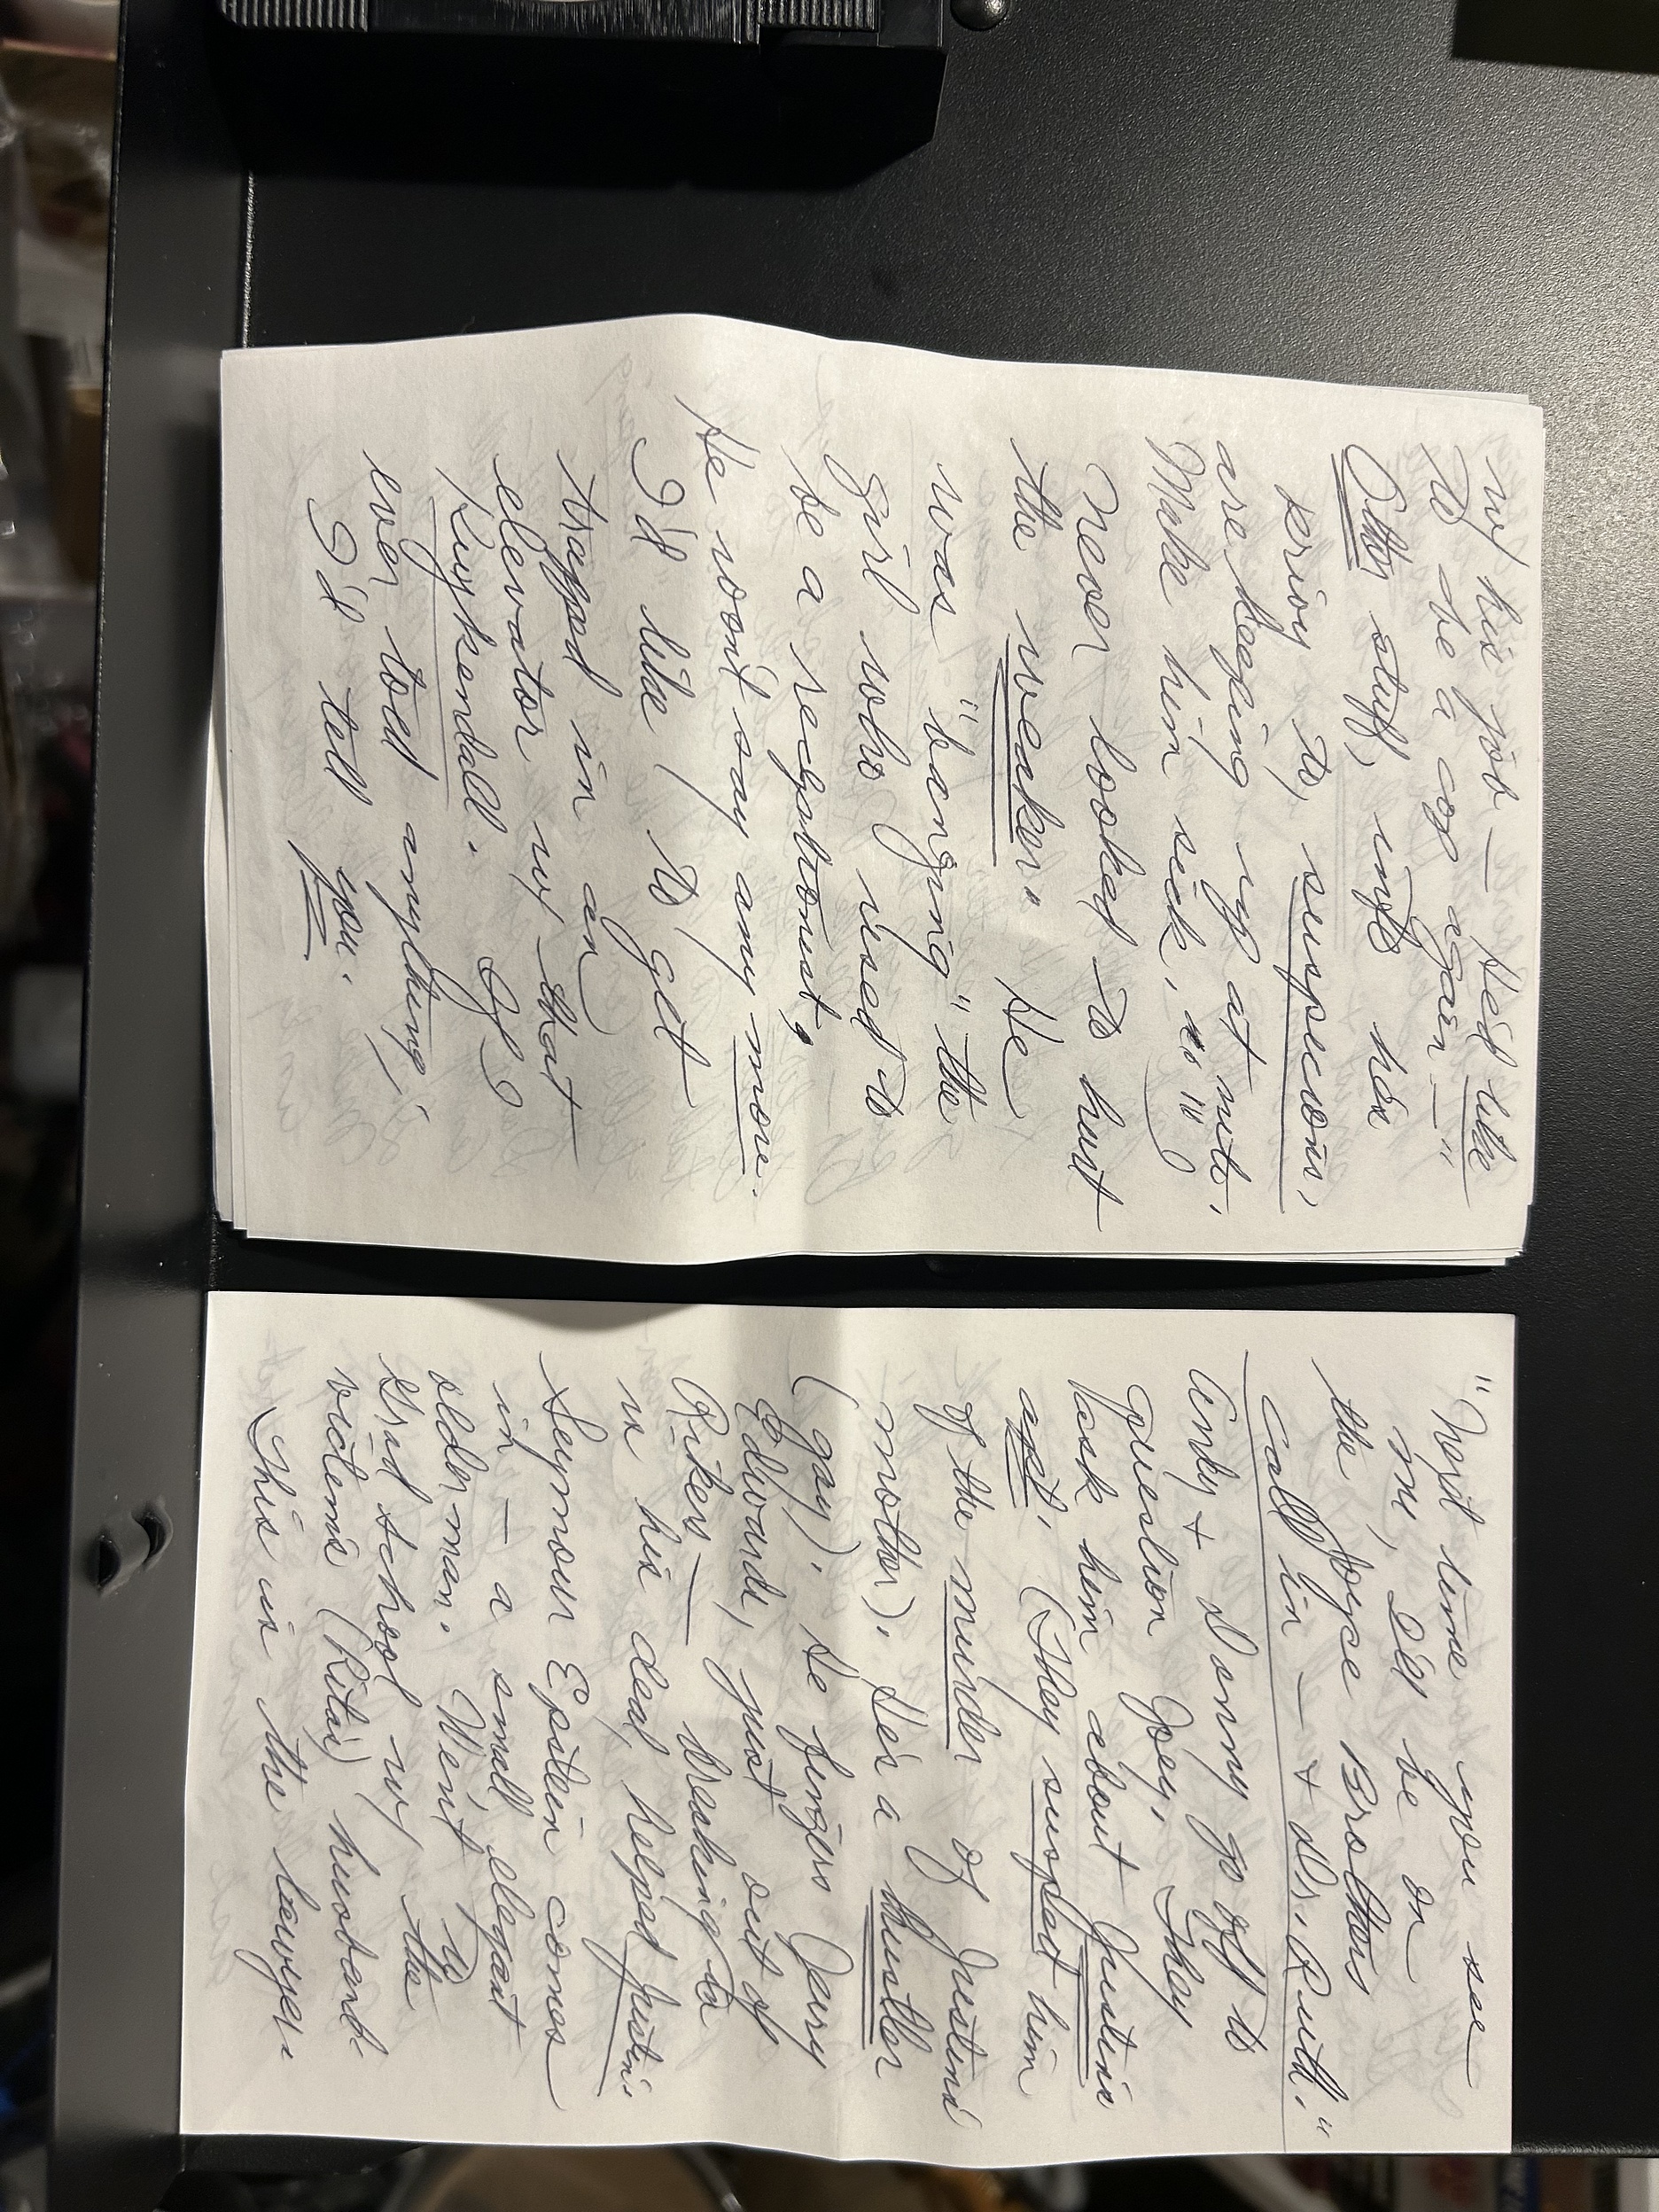 w/ his job — He'd like
to be a cop again —"
Otto stuff, into his
eriey to, suspicions,
are keeping up at nite.
Make him sick, "
Never looked to hurt
the weaker." He
was "banging" the
girl who used to
be a receptionist,
He won't say any more.
I'd like to get
trapped in an
elevator w/ that
Kuykendall. If I
ever told anything,
I'd tell you.
"Next time you see
me, I'll be on
the Joyce Brothers
call in — + Dr. Ruth."
Andy + Donny go off to
question Joey. They
ask him about Justin's
apt. (They suspect him
of the murder of Justin's
mother). He's a hustler
(gay). He fingers Jerry
Edwards, just out of
Rikers — Breaking in
is his deal, helped Justin.
Seymour Epstein comes
in — a small elegant
older man. Went to
Grad School w/ the
victem's (Rita's) husband
This is the lawyer.